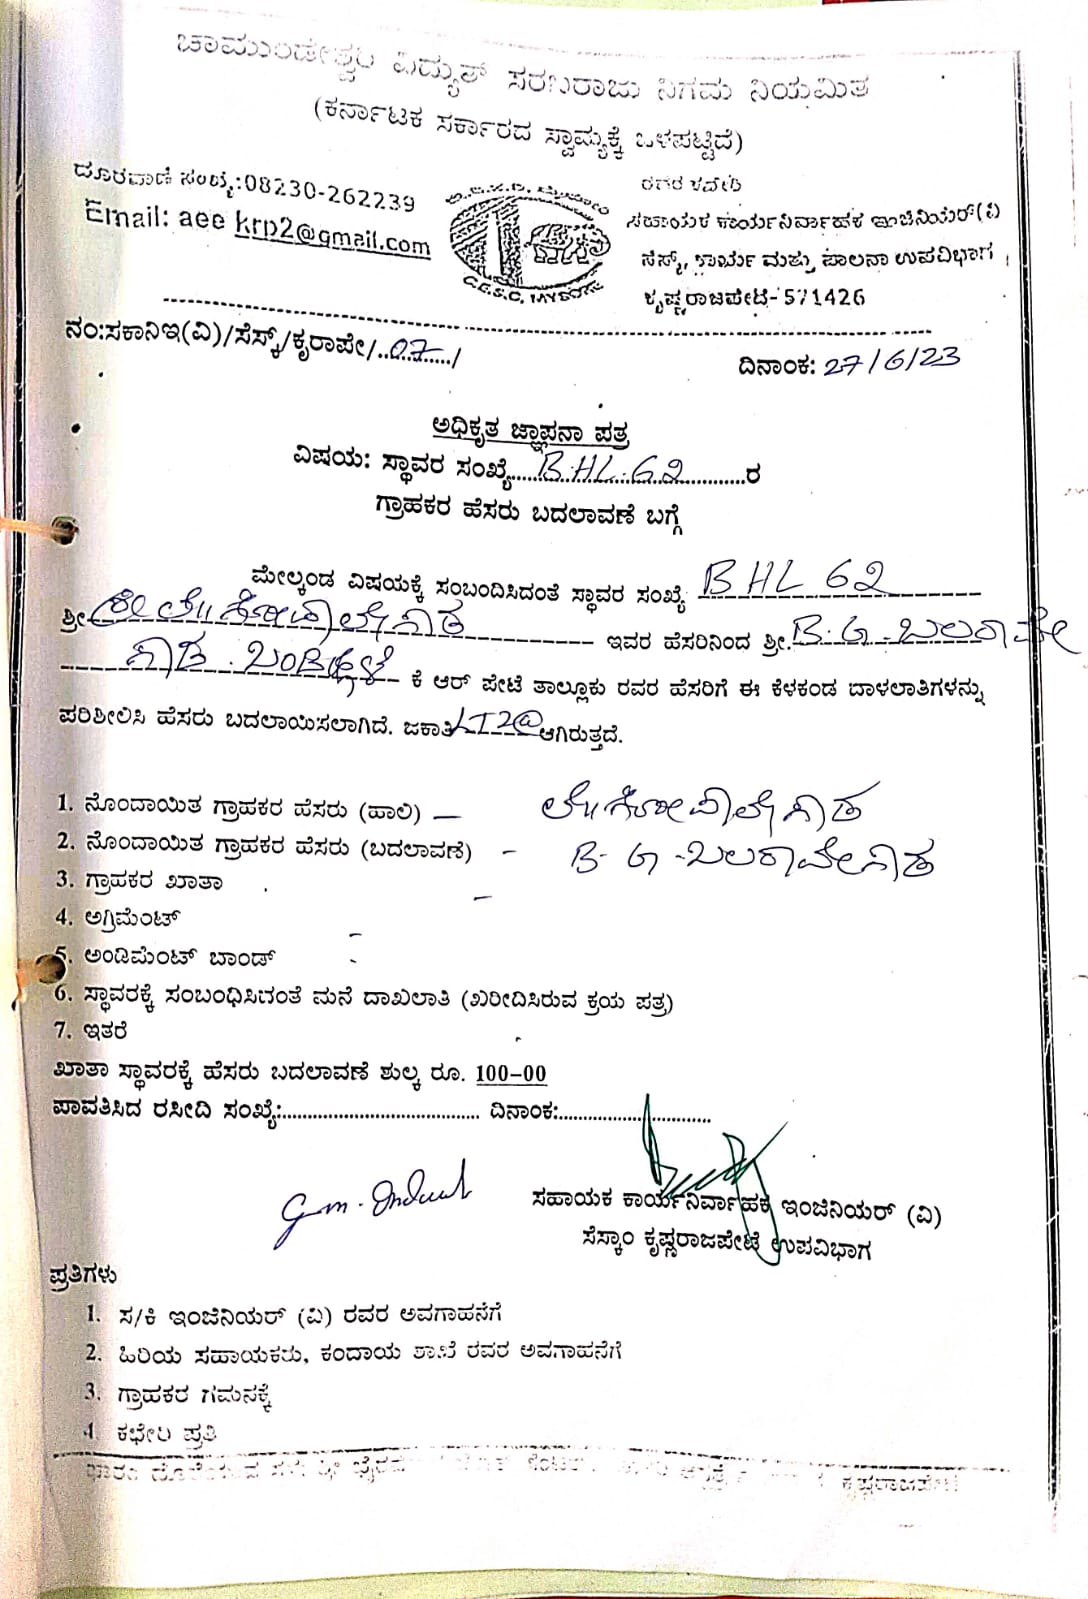 ಚಾಮುಂಡೇಶ್ವರಿ ವಿದ್ಯುತ್ ಸರಬರಾಜು ನಿಗಮ ನಿಯಮಿತ
(ಕರ್ನಾಟಕ ಸರ್ಕಾರದ ಸ್ವಾಮ್ಯಕ್ಕೆ ಒಳಪಟ್ಟಿದೆ)
ದೂರವಾಣಿ ಸಂಖ್ಯೆ:08230-262239
Email: aee krp2@gmail.com
C.E.S.C, MYSORE
ಸಹಾಯಕ ಕಾರ್ಯನಿರ್ವಾಹಕ ಇಂಜಿನಿಯರ್(ವಿ
ಸೆಸ್ಕ್, ಕಾರ್ಯ ಮತ್ತು ಪಾಲನಾ ಉಪವಿಭಾಗ,
ಕೃಷ್ಣರಾಜಪೇಟೆ-571426
ನಂ:ಸಕಾನಿಇ(ವಿ)/ಸೆಸ್ಕ್/ಕೃರಾಪೇ/..07..../
ದಿನಾಂಕ: 27/6/23
ಅಧಿಕೃತ ಜ್ಞಾಪನಾ ಪತ್ರ
ವಿಷಯ: ಸ್ಥಾವರ ಸಂಖ್ಯೆ.....BHL 62..........ರ
ಗ್ರಾಹಕರ ಹೆಸರು ಬದಲಾವಣೆ ಬಗ್ಗೆ
ಮೇಲ್ಕಂಡ ವಿಷಯಕ್ಕೆ ಸಂಬಂದಿಸಿದಂತೆ ಸ್ಥಾವರ ಸಂಖ್ಯೆ BHL 62
ಶ್ರೀ ಇವರ ಹೆಸರಿನಿಂದ ಶ್ರೀ. B.G. ಬಲರಾಮೇ
ಗೌಡ. ಕೆ ಆರ್ ಪೇಟೆ ತಾಲ್ಲೂಕು ರವರ ಹೆಸರಿಗೆ ಈ ಕೆಳಕಂಡ ದಾಳಲಾತಿಗಳನ್ನು
ಪರಿಶೀಲಿಸಿ ಹೆಸರು ಬದಲಾಯಿಸಲಾಗಿದೆ. ಜಕಾತಿ LT2@ ಆಗಿರುತ್ತದೆ.
1. ನೊಂದಾಯಿತ ಗ್ರಾಹಕರ ಹೆಸರು (ಹಾಲಿ) —
2. ನೊಂದಾಯಿತ ಗ್ರಾಹಕರ ಹೆಸರು (ಬದಲಾವಣೆ) - B-G-ಬಲರಾಮೇಗೌಡ
3. ಗ್ರಾಹಕರ ಖಾತಾ -
4. ಅಗ್ರಿಮೆಂಟ್ -
5. ಅಂಡಿಮೆಂಟ್ ಬಾಂಡ್ -
6. ಸ್ಥಾವರಕ್ಕೆ ಸಂಬಂಧಿಸಿದಂತೆ ಮನೆ ದಾಖಲಾತಿ (ಖರೀದಿಸಿರುವ ಕ್ರಯ ಪತ್ರ)
7. ಇತರೆ
ಖಾತಾ ಸ್ಥಾವರಕ್ಕೆ ಹೆಸರು ಬದಲಾವಣೆ ಶುಲ್ಕ ರೂ. 100-00
ಪಾವತಿಸಿದ ರಸೀದಿ ಸಂಖ್ಯೆ:.................................... ದಿನಾಂಕ:............................
ಸಹಾಯಕ ಕಾರ್ಯನಿರ್ವಾಹಕ ಇಂಜಿನಿಯರ್ (ವಿ)
ಸೆಸ್ಕಾಂ ಕೃಷ್ಣರಾಜಪೇಟೆ ಉಪವಿಭಾಗ
ಪ್ರತಿಗಳು
1. ಸ/ಕಿ ಇಂಜಿನಿಯರ್ (ವಿ) ರವರ ಅವಗಾಹನೆಗೆ
2. ಹಿರಿಯ ಸಹಾಯಕರು, ಕಂದಾಯ ಶಾಖೆ ರವರ ಅವಗಾಹನೆಗೆ
3. ಗ್ರಾಹಕರ ಗಮನಕ್ಕೆ
4. ಕಛೇರಿ ಪ್ರತಿ
ಕೃಷ್ಣರಾಜಪೇಟೆ